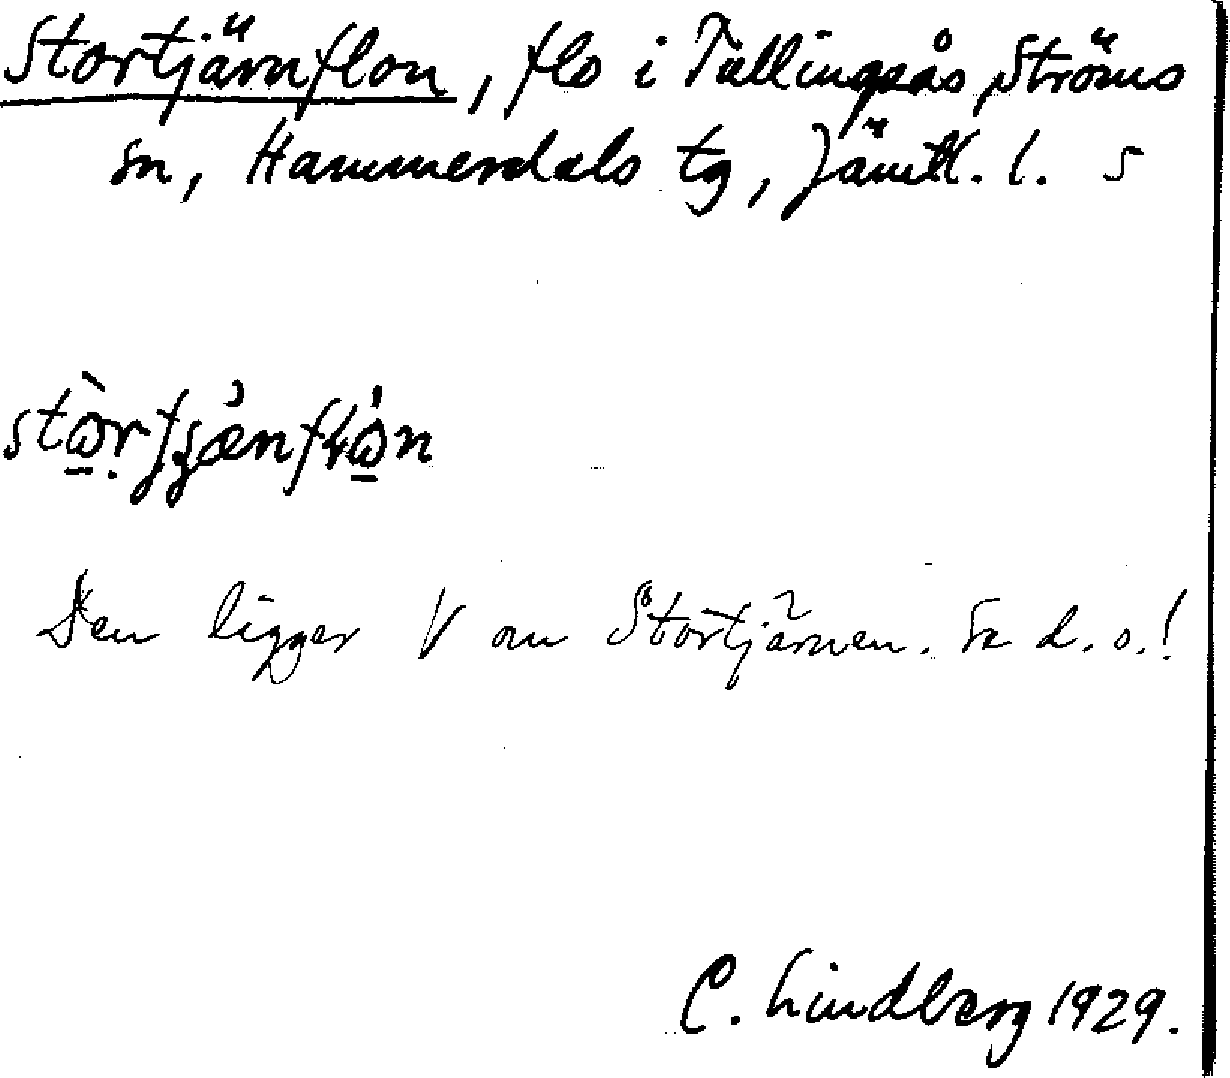 Stortjärnflon, flo i Tullingsås, Ströms
sn, Hammerdals tg, Jämtl. l. 5
Den ligger V om Stortjärnen. Se d. o.!
C. Lindberg 1929.